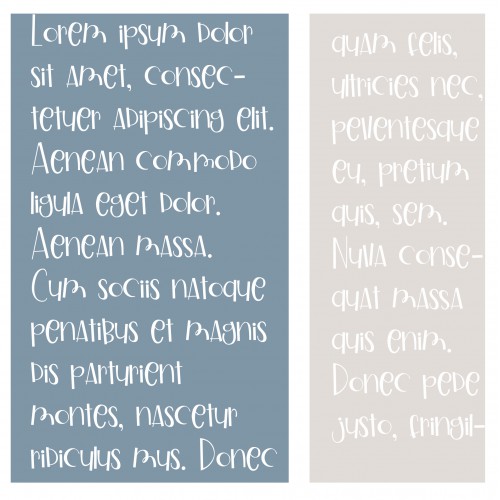 Lorem ipsum dolor
sit amet, consec-
tetuer adipiscing elit.
Aenean commodo
ligula eget dolor.
Aenean massa.
Cum sociis natoque
penatibus et magnis
dis parturient
montes, nascetur
ridiculus mus. Donec
quam felis,
ultricies nec,
pellentesque
eu, pretium
quis, sem.
Nulla conse-
quat massa
quis enim.
Donec pede
justo, fringil-